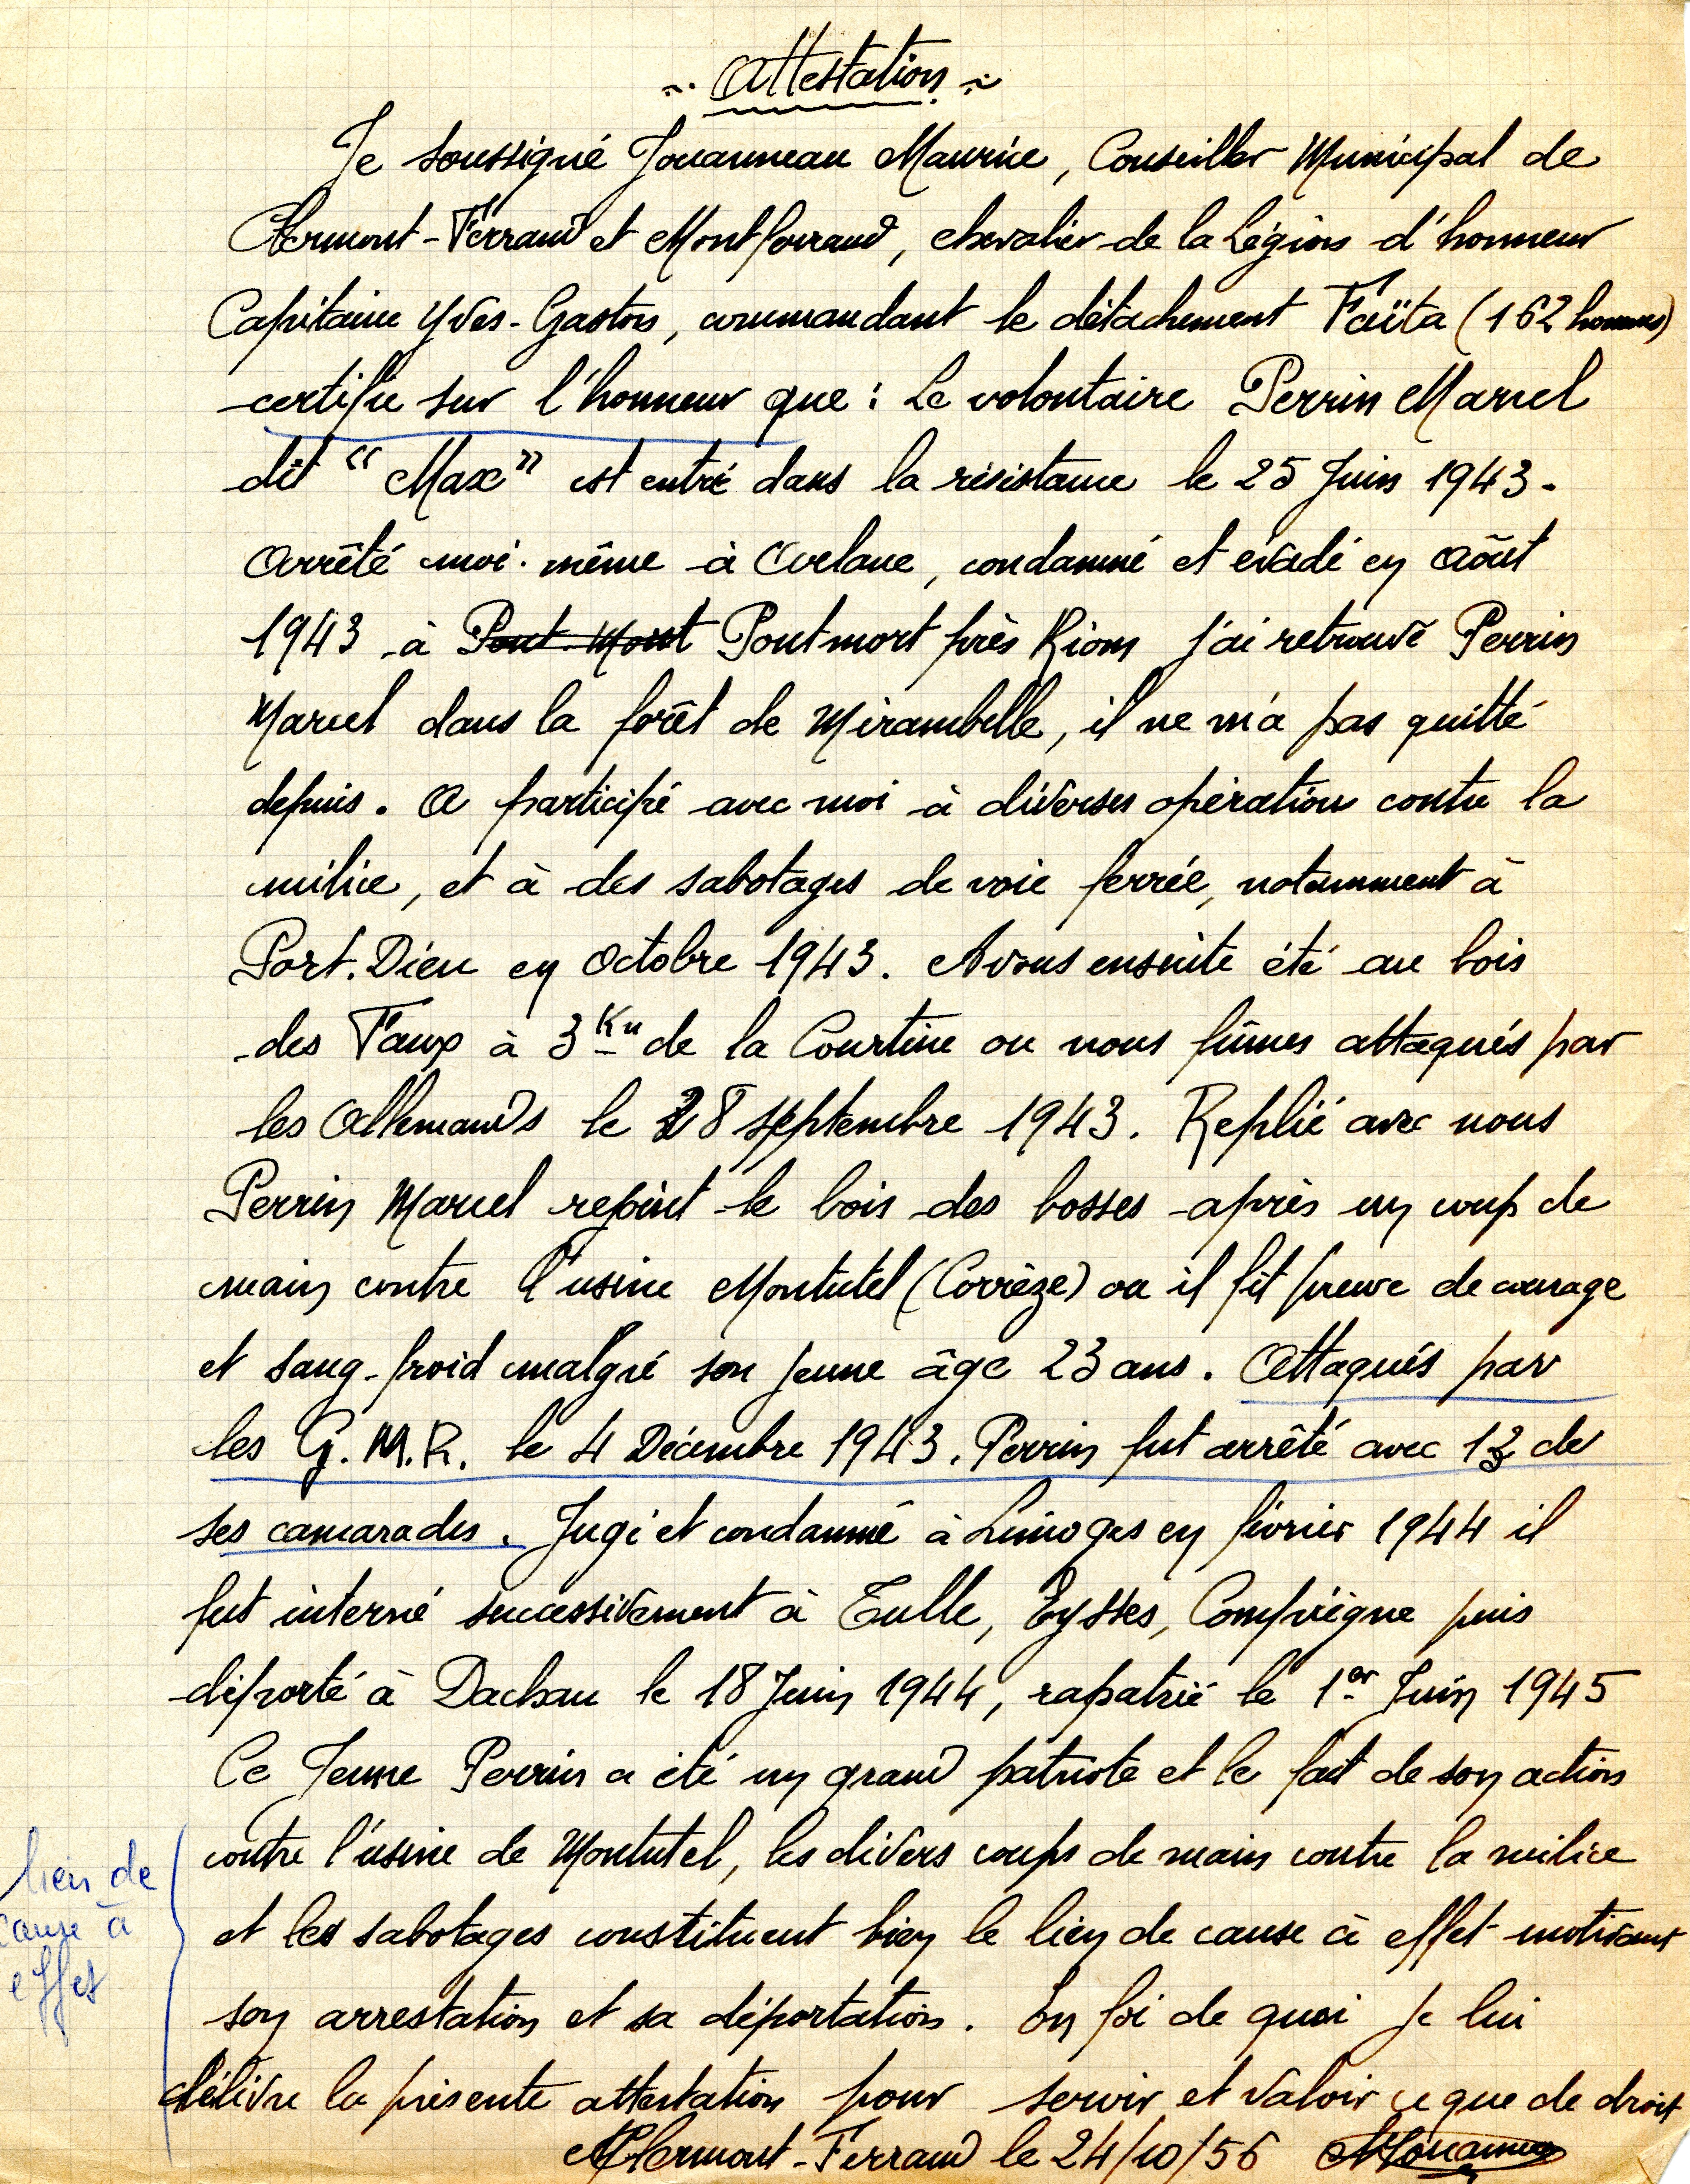 Attestation
Je soussigné Jouanneau Maurice, Conseiller Municipal de
Clermont-Ferrand et Montferrand, chevalier de la Légion d'honneur
Capitaine Yves-Gaston, commandant le détachement Faïta (162 hommes)
certifie sur l'honneur que : Le volontaire Perrin Marcel
dit "Max" est entré dans la résistance le 25 Juin 1943.
Arrêté moi-même à Arlanc, condamné et évadé en Août
1943 à Pont-Mort Pontmort près Riom j'ai retrouvé Perrin
Marcel dans la forêt de Mirambelle, il ne m'a pas quitté
depuis. A participé avec moi à diverses opération contre la
milice, et à des sabotages de voie ferrée, notamment à
Port.Dieu en Octobre 1943. Avons ensuite été au bois
des Faux à 3 Km de la Courtine ou nous fûmes attaqués par
les Allemands le 28 septembre 1943. Replié avec nous
Perrin Marcel rejoint le bois des bosses après un coup de
main contre l'usine Montutel (Corrèze) ou il fit preuve de courage
et sang-froid malgré son jeune âge 23 ans. Attaqués par
les G.M.R. le 4 Décembre 1943. Perrin fut arrêté avec 13 de
ses camarades. Jugé et condamné à Limoges en février 1944 il
fut interné successivement à Tulle, Eysses, Compiègne puis
déporté à Dachau le 18 Juin 1944, rapatrié le 1er Juin 1945
Ce Jeune Perrin a été un grand patriote et le fait de son action
contre l'usine de Montutel, les divers coups de main contre la milice
et les sabotages constituent bien le lien de cause à effet motivant
son arrestation et sa déportation. En foi de quoi je lui
délivre la présente attestation pour servir et valoir ce que de droit
Clermont-Ferrand le 24/10/56
lien de
cause à
effet